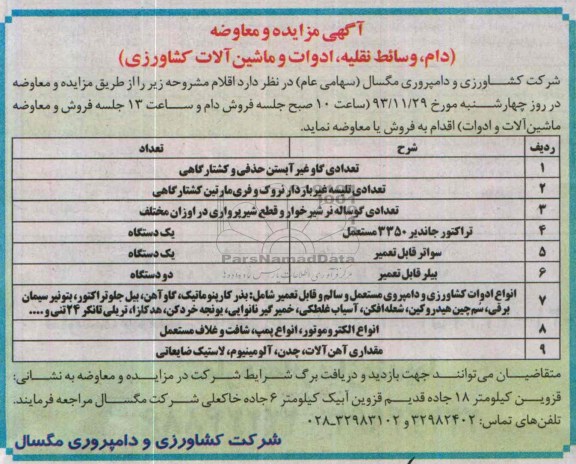 آگهی مزایده و معاوضه
(دام، وسائط نقلیه، ادوات و ماشین آلات کشاورزی)
شرکت کشاورزی و دامپروری مگسال (سهامی عام) در نظر دارد اقلام مشروحه زیر را از طریق مزایده و معاوضه
در روز چهارشنبه مورخ ۹۳/۱۱/۲۹ (ساعت ۱۰ صبح جلسه فروش دام و ساعت ۱۳ جلسه فروش و معاوضه
ماشین آلات و ادوات) اقدام به فروش یا معاوضه نماید.
ردیف شرح تعداد
۱ تعدادی گاو غیر آبستن حذفی و کشتارگاهی
۲ تعدادی تلیسه غیر باردار نروک و فری مارتین کشتارگاهی
۳ تعدادی گوساله نر شیرخوار و قطع شیر پرواری در اوزان مختلف
۴ تراکتور جاندیر ۳۳۵۰ مستعمل یک دستگاه
۵ سواتر قابل تعمیر یک دستگاه
۶ بیلر قابل تعمیر دو دستگاه
۷ انواع ادوات کشاورزی و دامپروری مستعمل و سالم و قابل تعمیر شامل: بذر کار پنوماتیک، گاوآهن، بیل جلو تراکتور، بتونیر سیمان
برقی، سم چین هیدروکین، شعله افکن، آسیاب غلطکی، خمیرگیر نانوایی، یونجه خردکن، هدکازا، تریلی تانکر ۲۴ تنی و ....
۸ انواع الکتروموتور، انواع پمپ، شافت و غلاف مستعمل
۹ مقداری آهن آلات، چدن، آلومینیوم، لاستیک ضایعاتی
ParsNamadData
متقاضیان می توانند جهت بازدید و دریافت برگ شرایط شرکت در مزایده و معاوضه به نشانی:
قزوین کیلومتر ۱۸ جاده قدیم قزوین آبیک کیلومتر ۶ جاده خاکعلی شرکت مگسال مراجعه فرمایند.
تلفن های تماس: ۳۲۹۸۲۴۰۲ و ۳۲۹۸۳۱۰۲-۰۲۸
شرکت کشاورزی و دامپروری مگسال